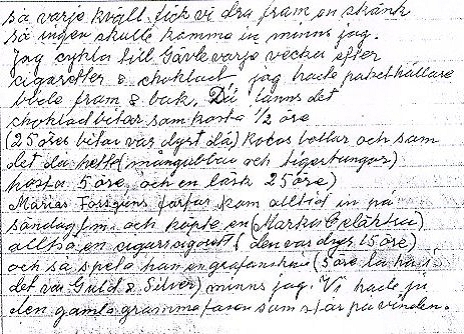 så varje kväll fick vi dra fram en skänk
så ingen skulle komma in minns jag.
Jag cykla till Gävle varje vecka efter
cigaretter & choklad jag hade pakethållare
både fram & bak. Då fanns det
chokladbitar som kosta 1/2 öre
(25 öres bitar var dyrt då) Kokos bollar och som
det då hette (mångubbar och tigertungor)
kosta 5 öre och en läsk 25 öre)
Marias Forsgrens farfar kom alltid in på
söndag f.m. och köpte en
alltså en (den var dyr, 15 öre)
och så spela han en (5 öre la han i
det var Guld & Silver) minns jag. Vi hade ju
den gamla grammofonen som står på vinden.